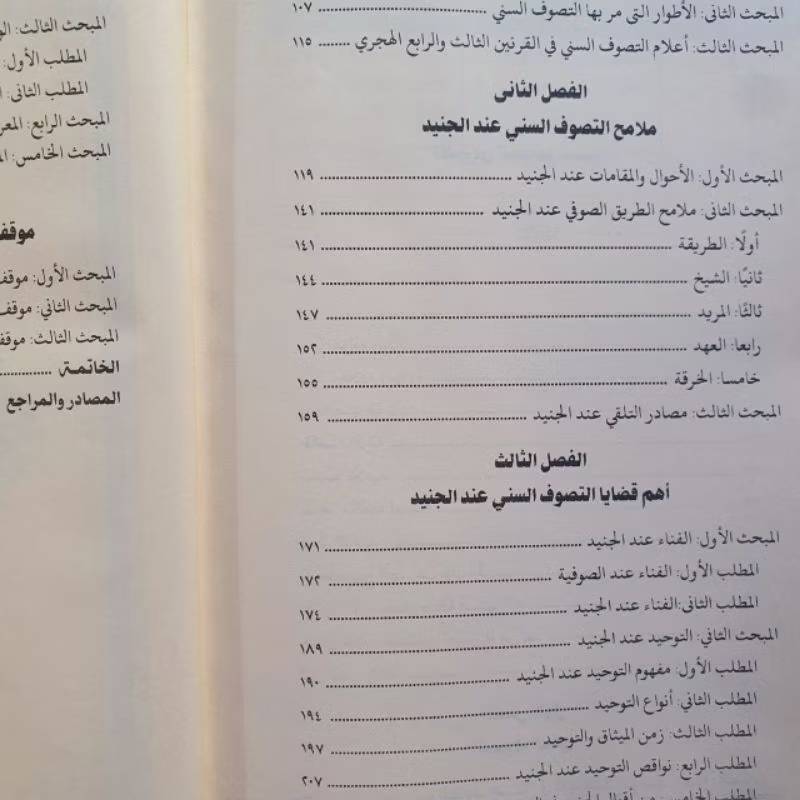 المبحث الثانى: الأطوار التى مر بها التصوف السني ........ ١٠٧
المبحث الثالث: أعلام التصوف السني في القرنين الثالث والرابع الهجري ........ ١١٥
الفصل الثانى
ملامح التصوف السني عند الجنيد
المبحث الأول: الأحوال والمقامات عند الجنيد ........ ١١٩
المبحث الثانى: ملامح الطريق الصوفي عند الجنيد ........ ١٤١
أولًا: الطريقة ........ ١٤١
ثانيًا: الشيخ ........ ١٤٤
ثالثًا: المريد ........ ١٤٧
رابعا: العهد ........ ١٥٢
خامسا: الخرقة ........ ١٥٥
المبحث الثالث: مصادر التلقي عند الجنيد ........ ١٥٩
الفصل الثالث
أهم قضايا التصوف السني عند الجنيد
المبحث الأول: الفناء عند الجنيد ........ ١٧١
المطلب الأول: الفناء عند الصوفية ........ ١٧٢
المطلب الثانى:الفناء عند الجنيد ........ ١٧٤
المبحث الثاني: التوحيد عند الجنيد ........ ١٨٩
المطلب الأول: مفهوم التوحيد عند الجنيد ........ ١٩٠
المطلب الثاني: أنواع التوحيد ........ ١٩٤
المطلب الثالث: زمن الميثاق والتوحيد ........ ١٩٧
المطلب الرابع: نواقص التوحيد عند الجنيد ........ ٢٠٧
المطلب الخامس: من أقوال
المبحث الثالث:
المطلب الأول:
المطلب الثانى:
المبحث الرابع:
المبحث الخامس:
المبحث الأول:
المبحث الثاني:
المبحث الثالث:
الخاتمة ........
المصادر والمراجع